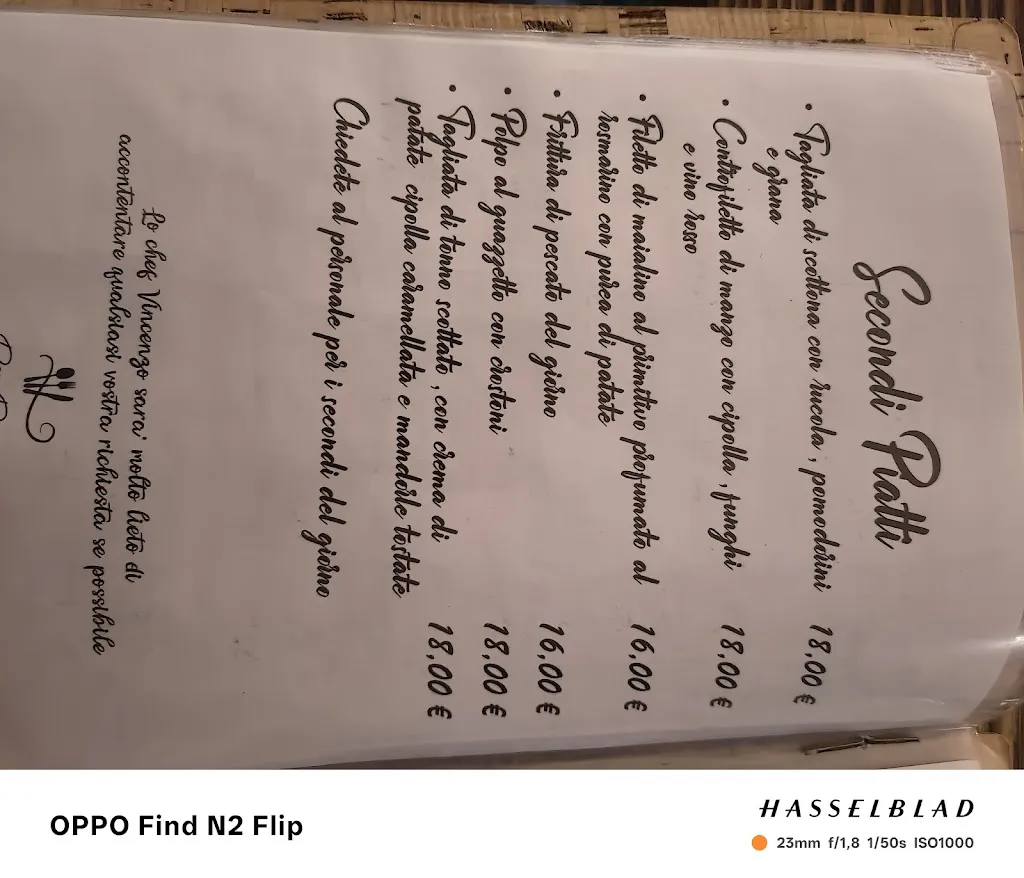 Secondi Piatti
• Tagliata di scottona con rucola, pomodorini 18,00 €
e grana
• Controfiletto di manzo con cipolla, funghi 18,00 €
e vino rosso
• Filetto di maialino al primitivo profumato al 16,00 €
rosmarino con purea di patate
• Frittura di pescato del giorno 16,00 €
• Polpo al guazzetto con crostoni 18,00 €
• Tagliata di tonno scottato, con crema di 18,00 €
patate cipolla caramellata e mandorle tostate
Chiedete al personale per i secondi del giorno
Lo chef Vincenzo sara' molto lieto di
accontentare qualsiasi vostra richiesta se possibile
OPPO Find N2 Flip
HASSELBLAD
23mm f/1,8 1/50s ISO1000